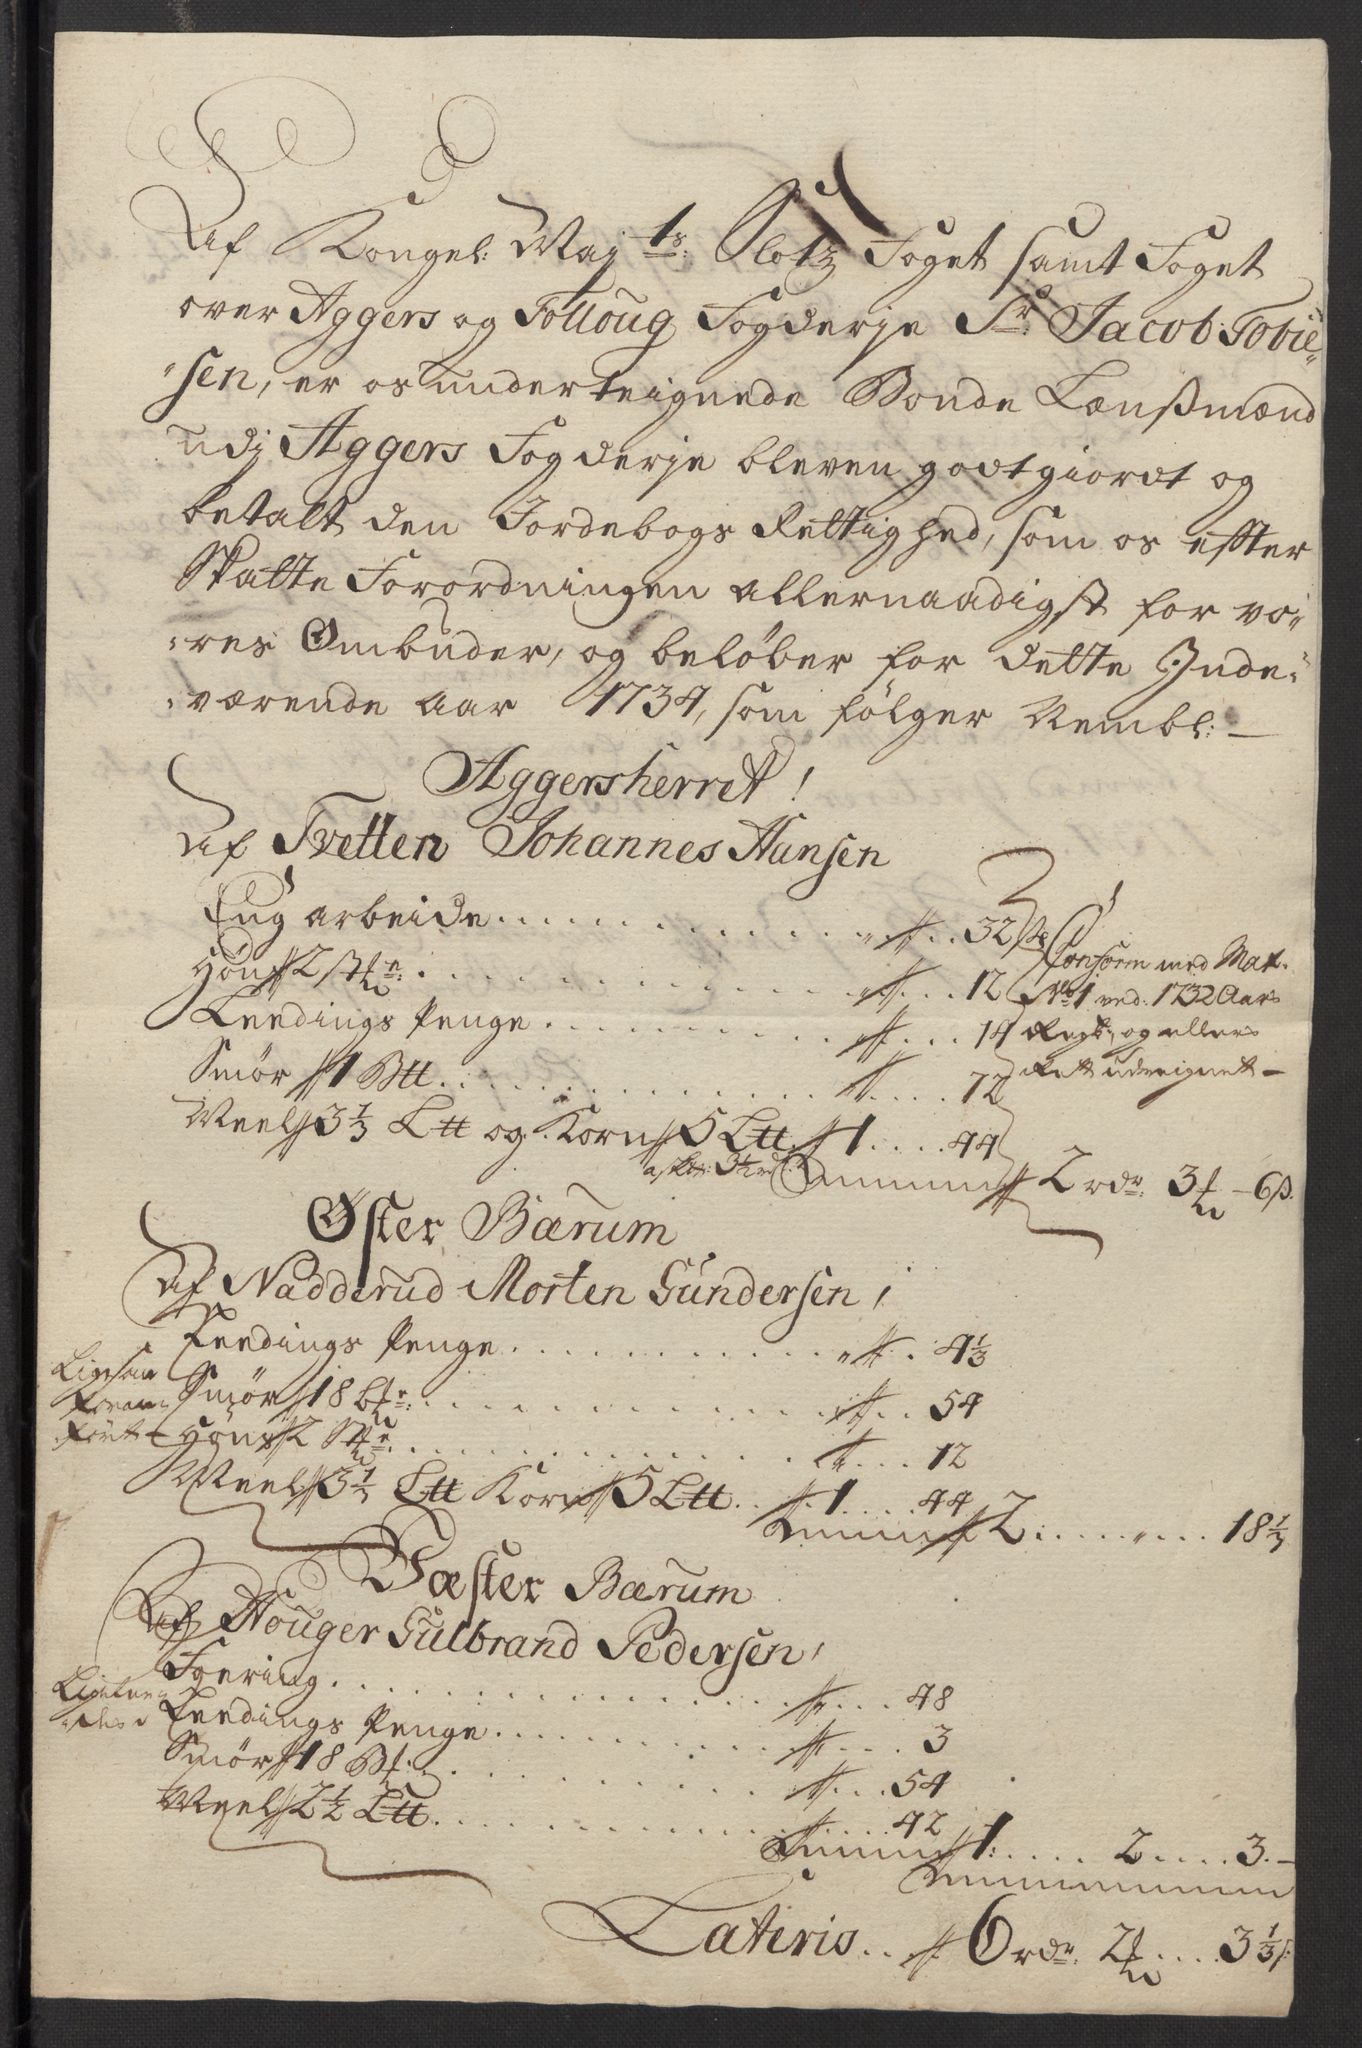 Af Kongel: Maj ts: Slotz Foget samt Foget
over Aggers og Folloug Fogderje Sr. Jacob Tobie-
"sen, er os underteignede Bonde Lænßmænd
udj Aggers Fogderje bleven godtgiordt og
betalt den Jordebogs Rettighed, som os effter
Skatte Forordningen allernaadigst for vo-
:res Ombuder, og beløber for dette Inde-
:værende Aar 1734, som følger Nembl: —
Aggersherret!
Af Tvetten Johannes Hansen
Eng arbeide . . . . . . . . " # . . 32 s
Høns # 2 st: . . . . . . . . " # . . . 12
Leedings Penge . . . . . . . . # . . . . 14
Smør # 1 Btt . . . . . . . . # . . . . 72
Meel # 3 1/3 Ltt og Korn # 5 Ltt # 1 . . . . 44
Conform med Mat.
No 1 ved 1732 Aars
Regsk: og ellers
Ret udreignet —
# 2 rdr: 3 — 6 s.
Øster Bærum
Af Nadderud Morten Gundersen,
Leedings Penge . . . . . . . . " # . . 4 1/3
Smør # 18 . . . . . . . . # . . . 54
Høns # 2 St: . . . . . . . . # . . . . 12
Meel # 3 1/3 Ltt Korn # 5 Ltt . . # 1 . . . . 44
# 2 : . . . . " . . . 18 1/3
Væster Bærum
Af Houger Gulbrand Pedersen,
Foering . . . . . . . . # . . . 48
Leedings Penge . . . . . . . . # . . . . 3
Smør # 18 . . . . . . . . # . . . 54
Meel # 2 1/2 Ltt . . . . . . . . 42
# 1: . . . . 2 . . . . 3. —
Lateris . . # 6 rdr: 2 . . . . 3 1/3 s: